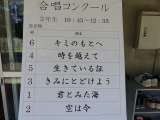 合唱コンクール
2年生 10:45~12:35
6 キミのもとへ
4 時を越えて
5 生きている証
3 きみにとどけよう
1 君とみた海
2 空は今